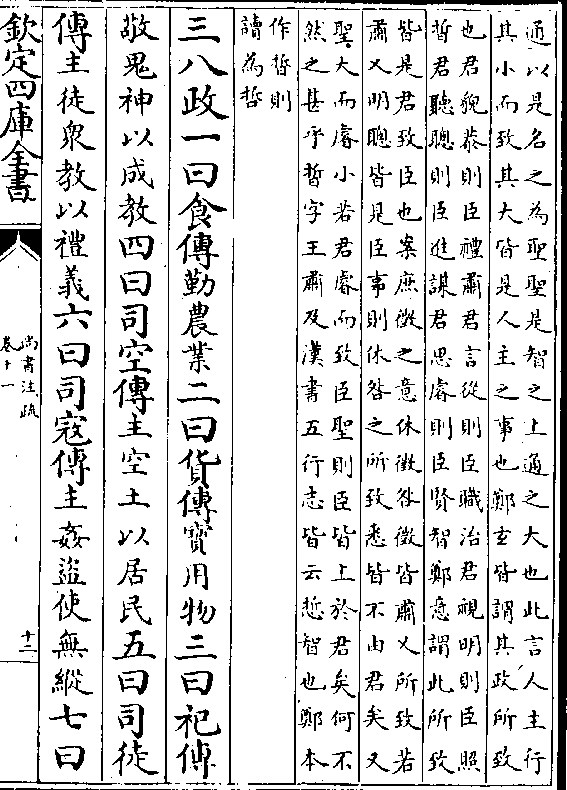 通以是名之為聖聖是智之上通之大也此言人主行
其小而致其大皆是人主之事也鄭玄皆謂其政所致
也君貌恭則臣禮肅君言從則臣職治君視明則臣照
晢君聽聰則臣進謀君思睿則臣賢智鄭意謂此所致
皆是君致臣也案庶徵之意休徵咎徵皆肅乂所致若
肅乂明聰皆是臣事則休咎之所致悉皆不由君矣又
聖大而睿小若君睿而致臣聖則臣皆上於君矣何不
然之甚乎晢字王肅及漢書五行志皆云悊智也鄭本
作晢則
讀為哲
三八政一曰食傳勤農業二曰貨傳寶用物三曰祀傳
敬鬼神以成教四曰司空傳主空土以居民五曰司徒
傳主徒衆教以禮義六曰司寇傳主姦盜使無縱七曰
欽定四庫全書
尚書注疏
卷十一
十二